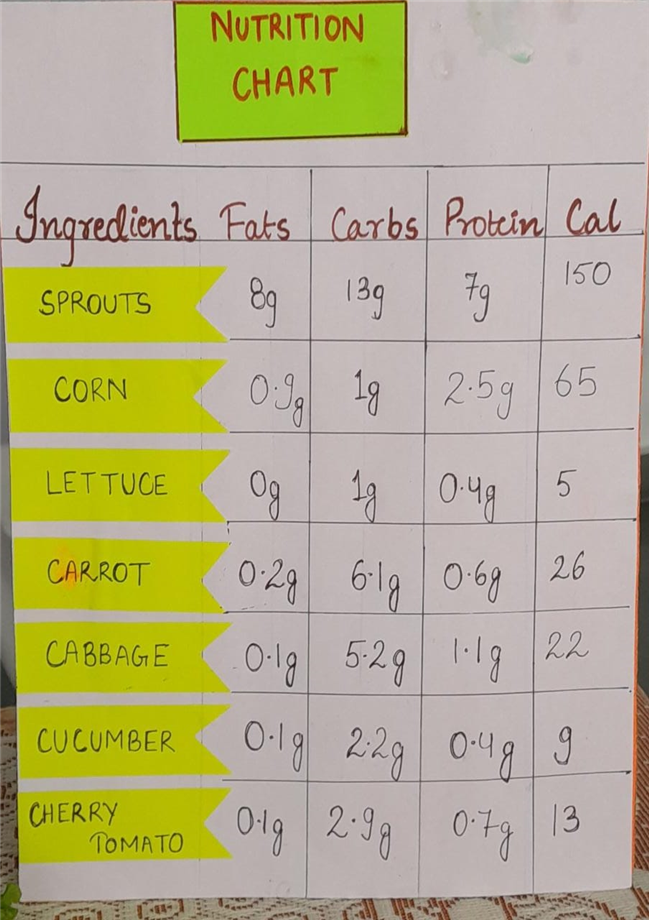 NUTRITION
CHART
Ingredients Fats Carbs Protein Cal
SPROUTS 8g 13g 7g 150
CORN 0.9g 1g 2.5g 65
LETTUCE 0g 1g 0.4g 5
CARROT 0.2g 6.1g 0.6g 26
CABBAGE 0.1g 5.2g 1.1g 22
CUCUMBER 0.1g 2.2g 0.4g 9
CHERRY
TOMATO 0.1g 2.9g 0.7g 13